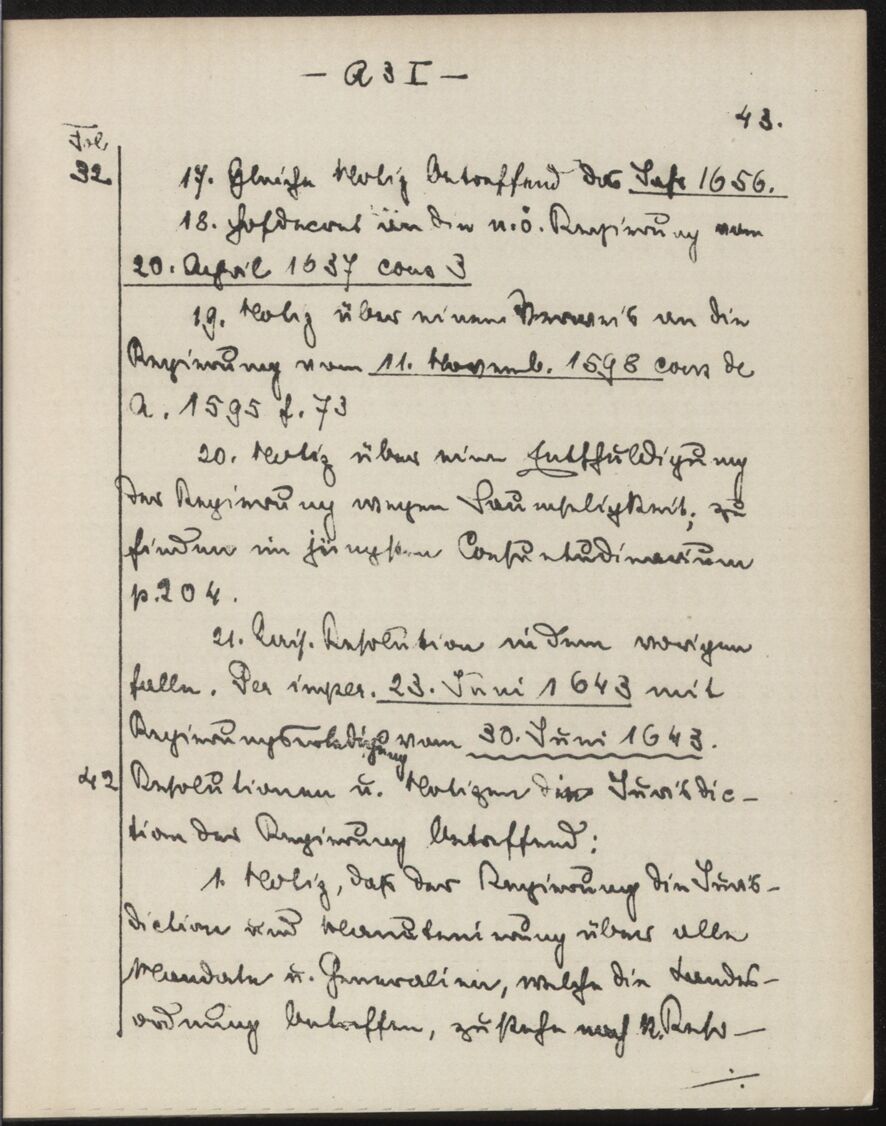 - A 3 I -
43.
Fol.
32
17. Gleiche Notiz betreffend das Jahr 1656.
18. Hofdecret an die n.ö. Regierung vom
20. April 1637 cons 3
19. Notiz über einen Verweis an die
Regierung vom 11. Novemb. 1598 cons de
A. 1595 f. 73
20. Notiz über eine Entschuldigung
der Regierung wegen Saumseligkeit; zu
finden im jüngsten Consuetudinarium
p. 204.
21. Kais. Resolution in dem vorigen
falle. Per imper. 23. Juni 1643 mit
Regierungserledigung vom 30. Juni 1643.
42
Resolutionen u. Notizen die Jurisdic-
tion der Regierung betreffend:
1. Notiz, daß der Regierung die Juris-
diction und Manutenierung über alle
Mandate u. Generalien, welche die Landes-
ordnung betreffen, zustehe nach k. Reso-
./.